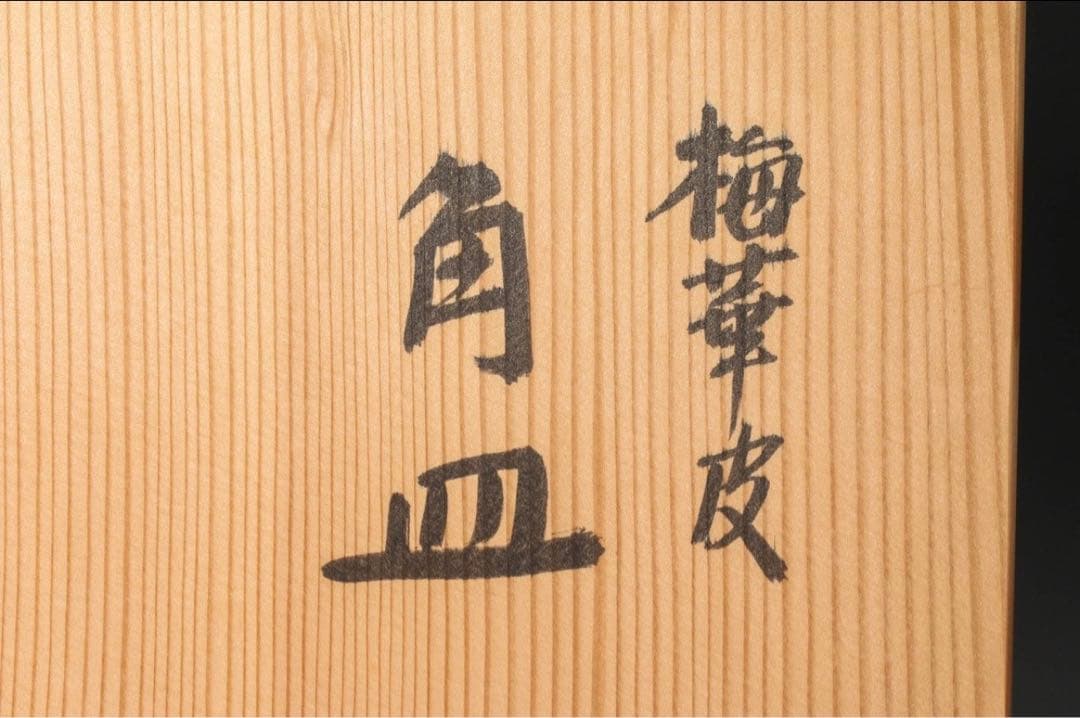 梅華皮
角皿